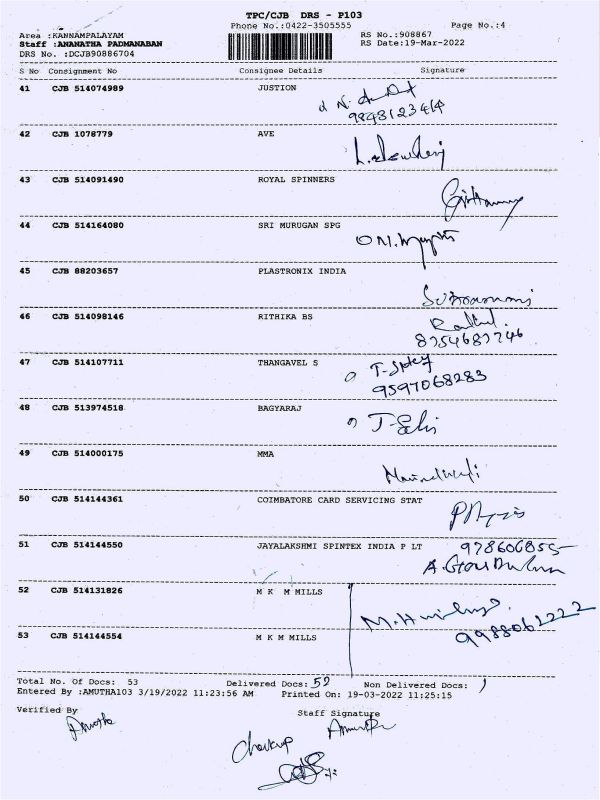 TPC/CJB DRS - P103
Phone No.:0422-3505555 Page No.:4
Area :KANNAMPALAYAM RS No.:908867
Staff :ANANATHA PADMANABAN RS Date:19-Mar-2022
DRS No. :DCJB90886704
S No Consignment No Consignee Details Signature
41 CJB 514074989 JUSTION
9848123414
42 CJB 1078779 AVE
43 CJB 514091490 ROYAL SPINNERS
44 CJB 514164080 SRI MURUGAN SPG
45 CJB 88203657 PLASTRONIX INDIA
46 CJB 514098146 RITHIKA BS
8754687746
47 CJB 514107711 THANGAVEL S
9597068283
48 CJB 513974518 BAGYARAJ
49 CJB 514000175 MMA
50 CJB 514144361 COIMBATORE CARD SERVICING STAT
51 CJB 514144550 JAYALAKSHMI SPINTEX INDIA P LT
52 CJB 514131826 M K M MILLS
9988062222
53 CJB 514144554 M K M MILLS
Total No. Of Docs: 53 Delivered Docs: 52 Non Delivered Docs: 1
Entered By :AMUTHA103 3/19/2022 11:23:56 AM Printed On: 19-03-2022 11:25:15
Verified By Staff Signature
Amutha